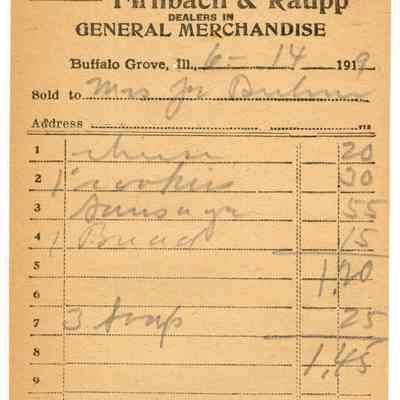 Firnbach & Raupp
DEALERS IN
GENERAL MERCHANDISE
Buffalo Grove, Ill., 6-14 1919
Sold to Mrs Jos
Address
1 cheese 20
2 1 cookies 30
3 Sausage 55
4 1 Bread 15
5 1,20
6
7 3 Soap 25
8 1,45
9